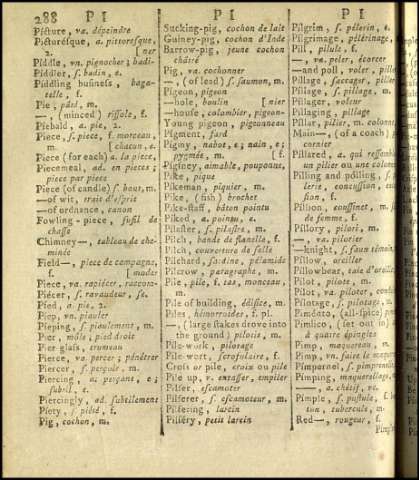 288 P I
Picture, va. dépeindre
Picturésque, a. pittoresque,
2. [ner
Piddle, vn. pignocher; badi-
Piddler, s. badin, e.
Piddling business, baga-
telle, f.
Pie; pâté, m.
—, (minced) rissole, f.
Piebald, a. pie, 2.
Piece, s. piece, f. morceau,
m. [chacun, e.
Piece (for each) a. la piece,
Piecemeal, ad. en pieces;
piece par piece
Piece (of candle) s. bout, m.
—of wit, trait d'esprit
—of ordnance, canon
Fowling-piece, fusil de
chasse
Chimney—, tableau de che-
minée
Field—, piece de campagne,
f.
Piece, va. rapiécer,
Piécer, s. ravaudeur, se.
Pied, a. pie, 2.
Piep, vn. piauler
Pieping, s. piaulement, m.
Pier, môle; pied droit
Pier glass, trumeau
Pierce, va. percer; pénétrer
Piercer, s. perçoir, m.
Piercing, a. perçant, e;
subtil, e.
Piercingly, ad. subtilement
Piety, s. piété, f.
Pig, cochon, m.
P I
Sucking-pig, cochon de lait
Guiney-pig, cochon d'Inde
Barrow-pig, jeune cochon
châtré
Pig, va. cochonner
—, (of lead) s. saumon, m.
Pigeon, pigeon
—hole, boulin [nier
—house, colombier, pigeon-
Young pigeon, pigeonneau
Pigment, fard
Pigmy, nabot, e; nain, e;
pygmée, m. [f.
Pigsney, aimable, pouponne,
Pike, pique
Pikeman, piquier, m.
Pike, (fish) brochet
Pike-staff, bâton pointu
Piked, a. pointu, e.
Pilaster, s. pilastre, m.
Pilch, bande de flanelle, f.
Pilch, couverture de selle
Pilchard, sardine, pélamide
Pilcrow, paragraphe, m.
Pile, pile, f. tas, monceau,
m.
Pile of building, édifice, m.
Piles, hémorroïdes, f. pl.
—, (large stakes drove into
the ground) pilotis, m.
Pile-work, pilotage
Pile-wort, scrofulaire, f.
Cross or pile, croix ou pile
Pile up, v. entasser, empiler
Pilfer, escamoter
Pilferer, s. escamoteur, m.
Pilfering, larcin
Pilféry, petit larcin
P I
Pilgrim, s. pélerin, e.
Pilgrimage, pélérinage,
Pill, pilule, f.
—, va. peler, écorcer
—and poll, voler, pille
Pillage, saccager, piller
Pillage, s. pillage, m.
Pillager, voleur
Pillaging, pillage
Pillar, pilier, m. colonne,
Main—, (of a coach)
cornier
Pillared, a. qui ressemble
un pilier ou une colonne
Pilling and pólling, s.
lerie, concussion,
sion, f.
Pillion, coussinet, m.
de femme, f.
Pillory, pilori, m.
—, va. pilorier
—knight, s. faux témoin,
Pillow, oreiller, m.
Pillowbear, taie d'oreiller
Pilot, pilote, m.
Pilot, va. piloter,
Pilotage, s. pilotage, m.
Piménto, (all-spice)
Pimlico, (set out in)
à quatre épingles
Pimp, maquereau, m.
Pimp, vn. faire le
Pimpernel, s. pimprenelle,
Pimping, maquerellage,
—, a. chétif, ve.
Pimple, s. pustule, f.
ton, tubercule, m.
Red—, rougeur, f.